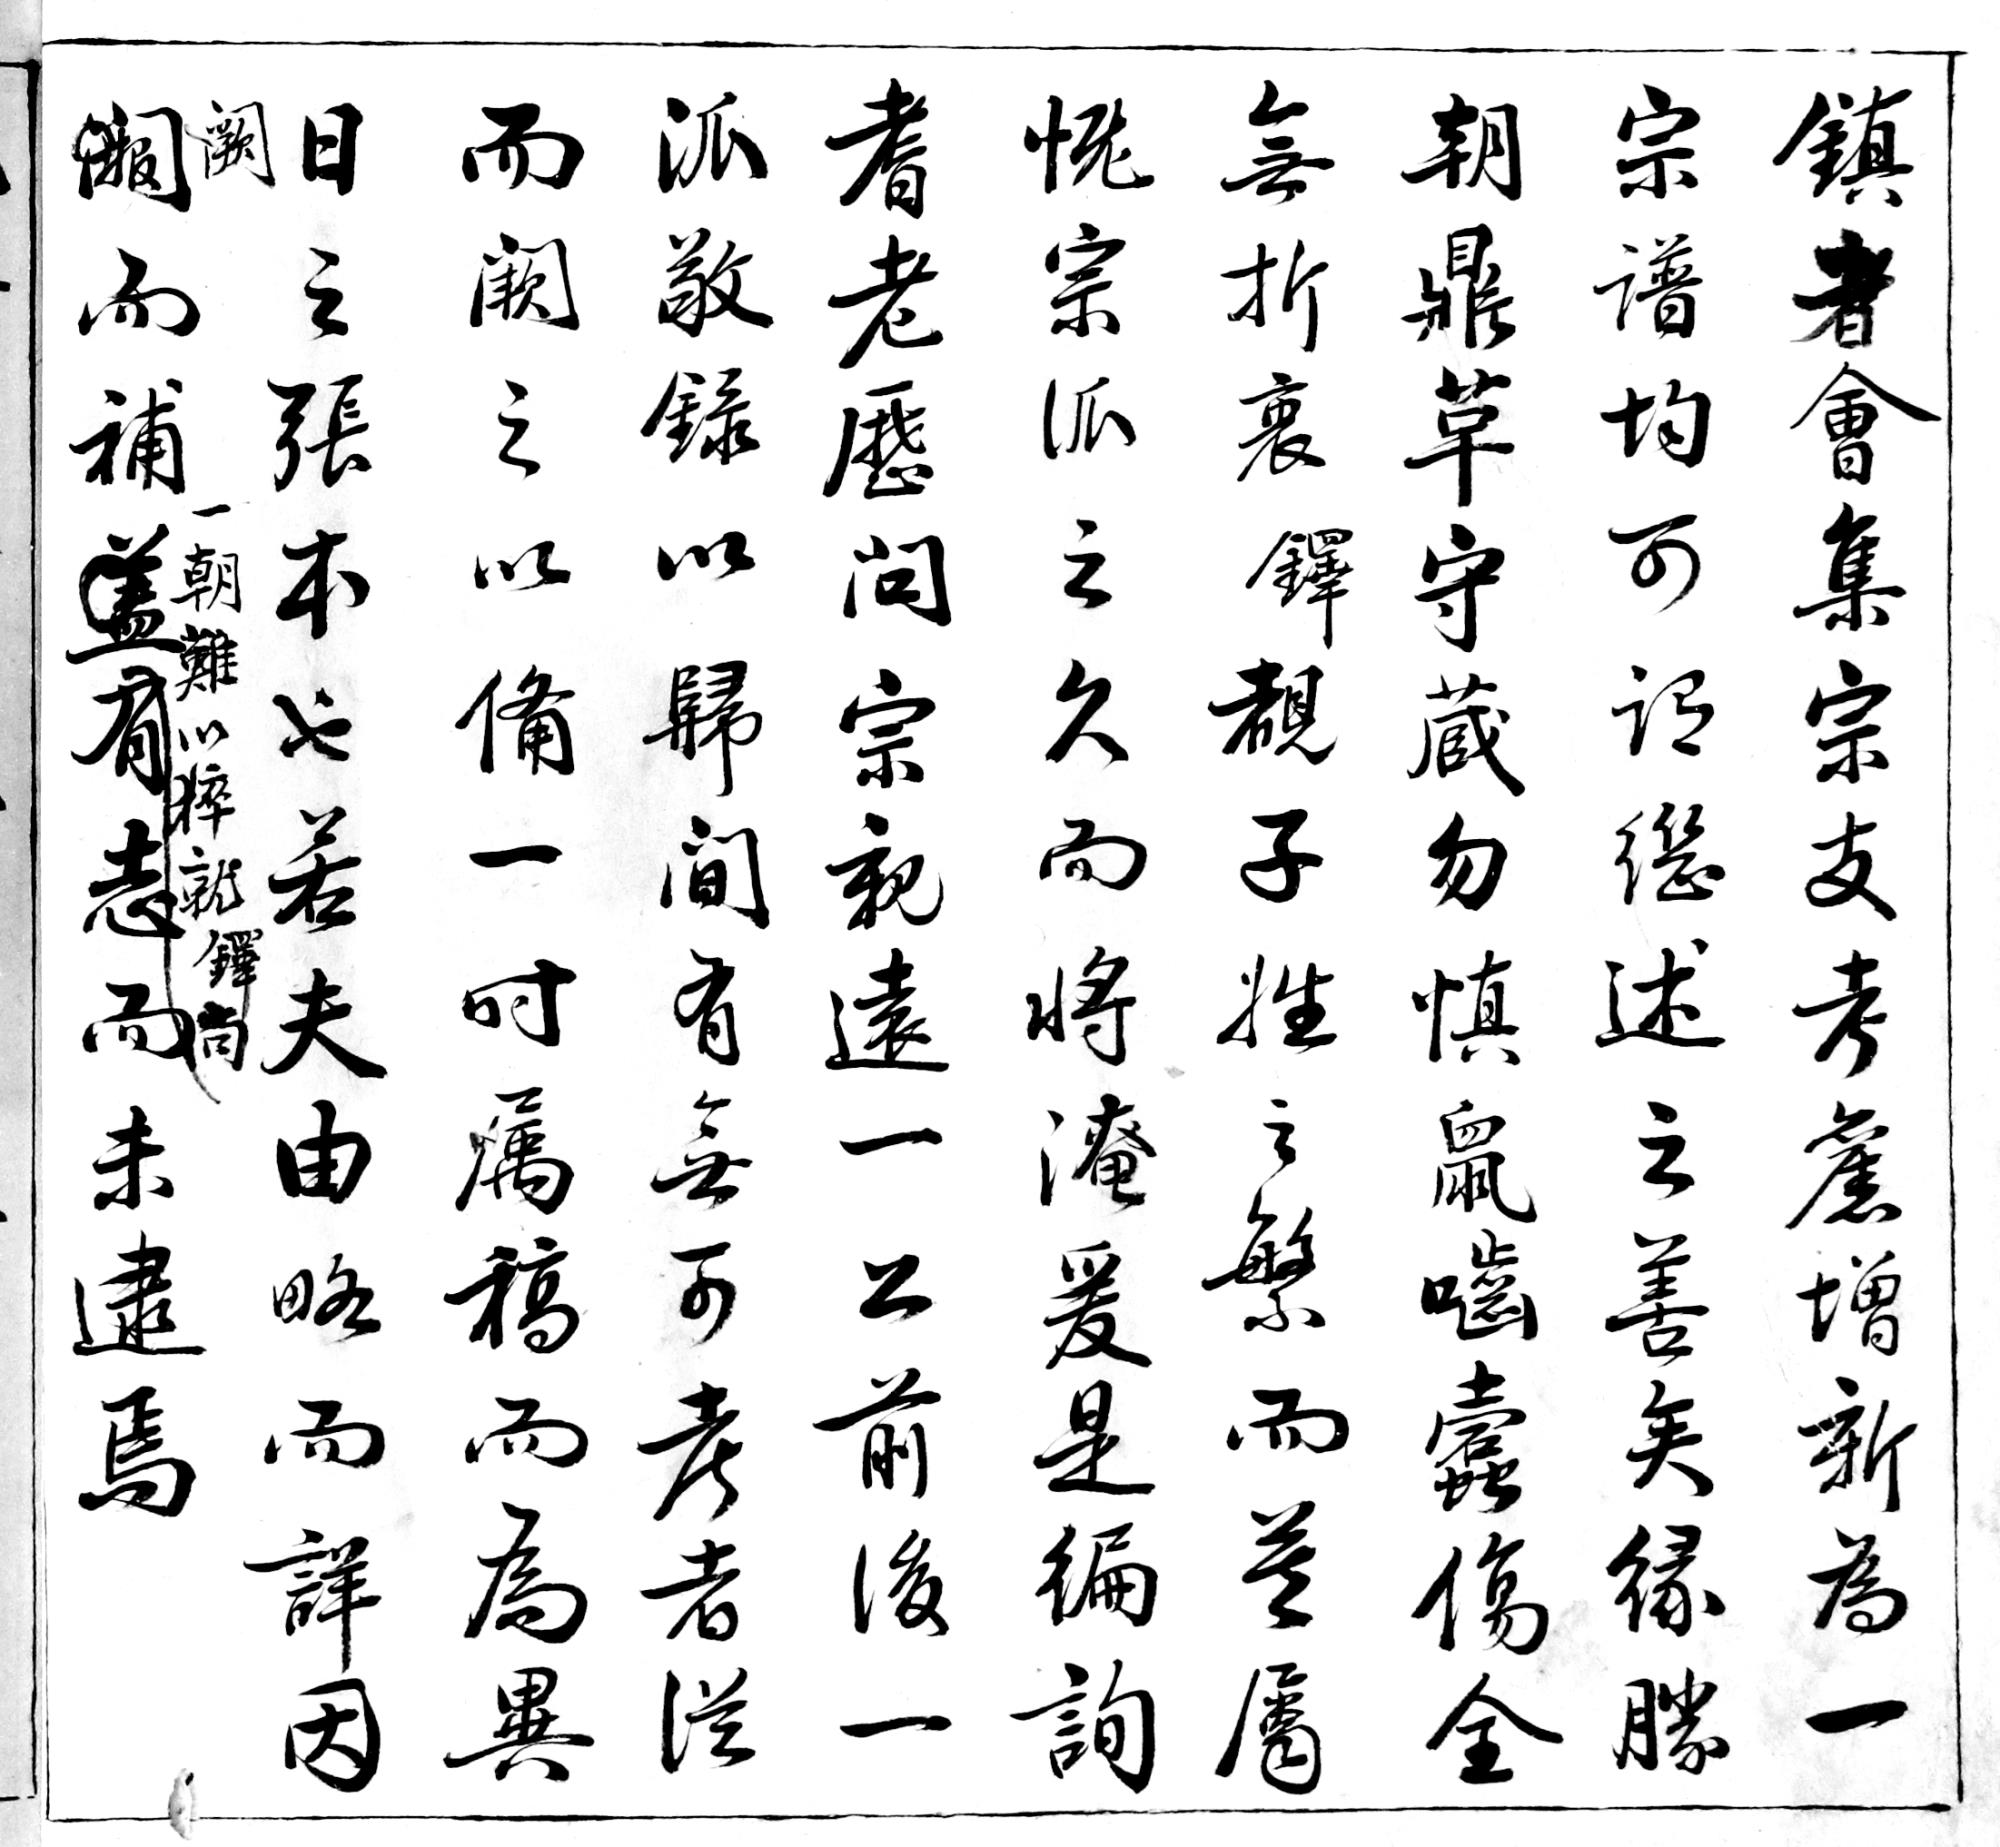 鎮者會集宗支考舊增新為一
宗譜均可謂繼述之善矣緣勝
朝鼎草守蔵勿慎鼠嚙蠹傷全
無折衷鐸覩子姓之繁而並屬
慨宗派之久而將淹爰是徧詢
耆老歷问宗親遠一公前後一
派敬錄以歸间有無可考者從
而闕之以備一时属稿而為異
日之張本也若夫由略而詳因
闕
而補盖有志而未逮焉
一朝難以猝就鐸尚